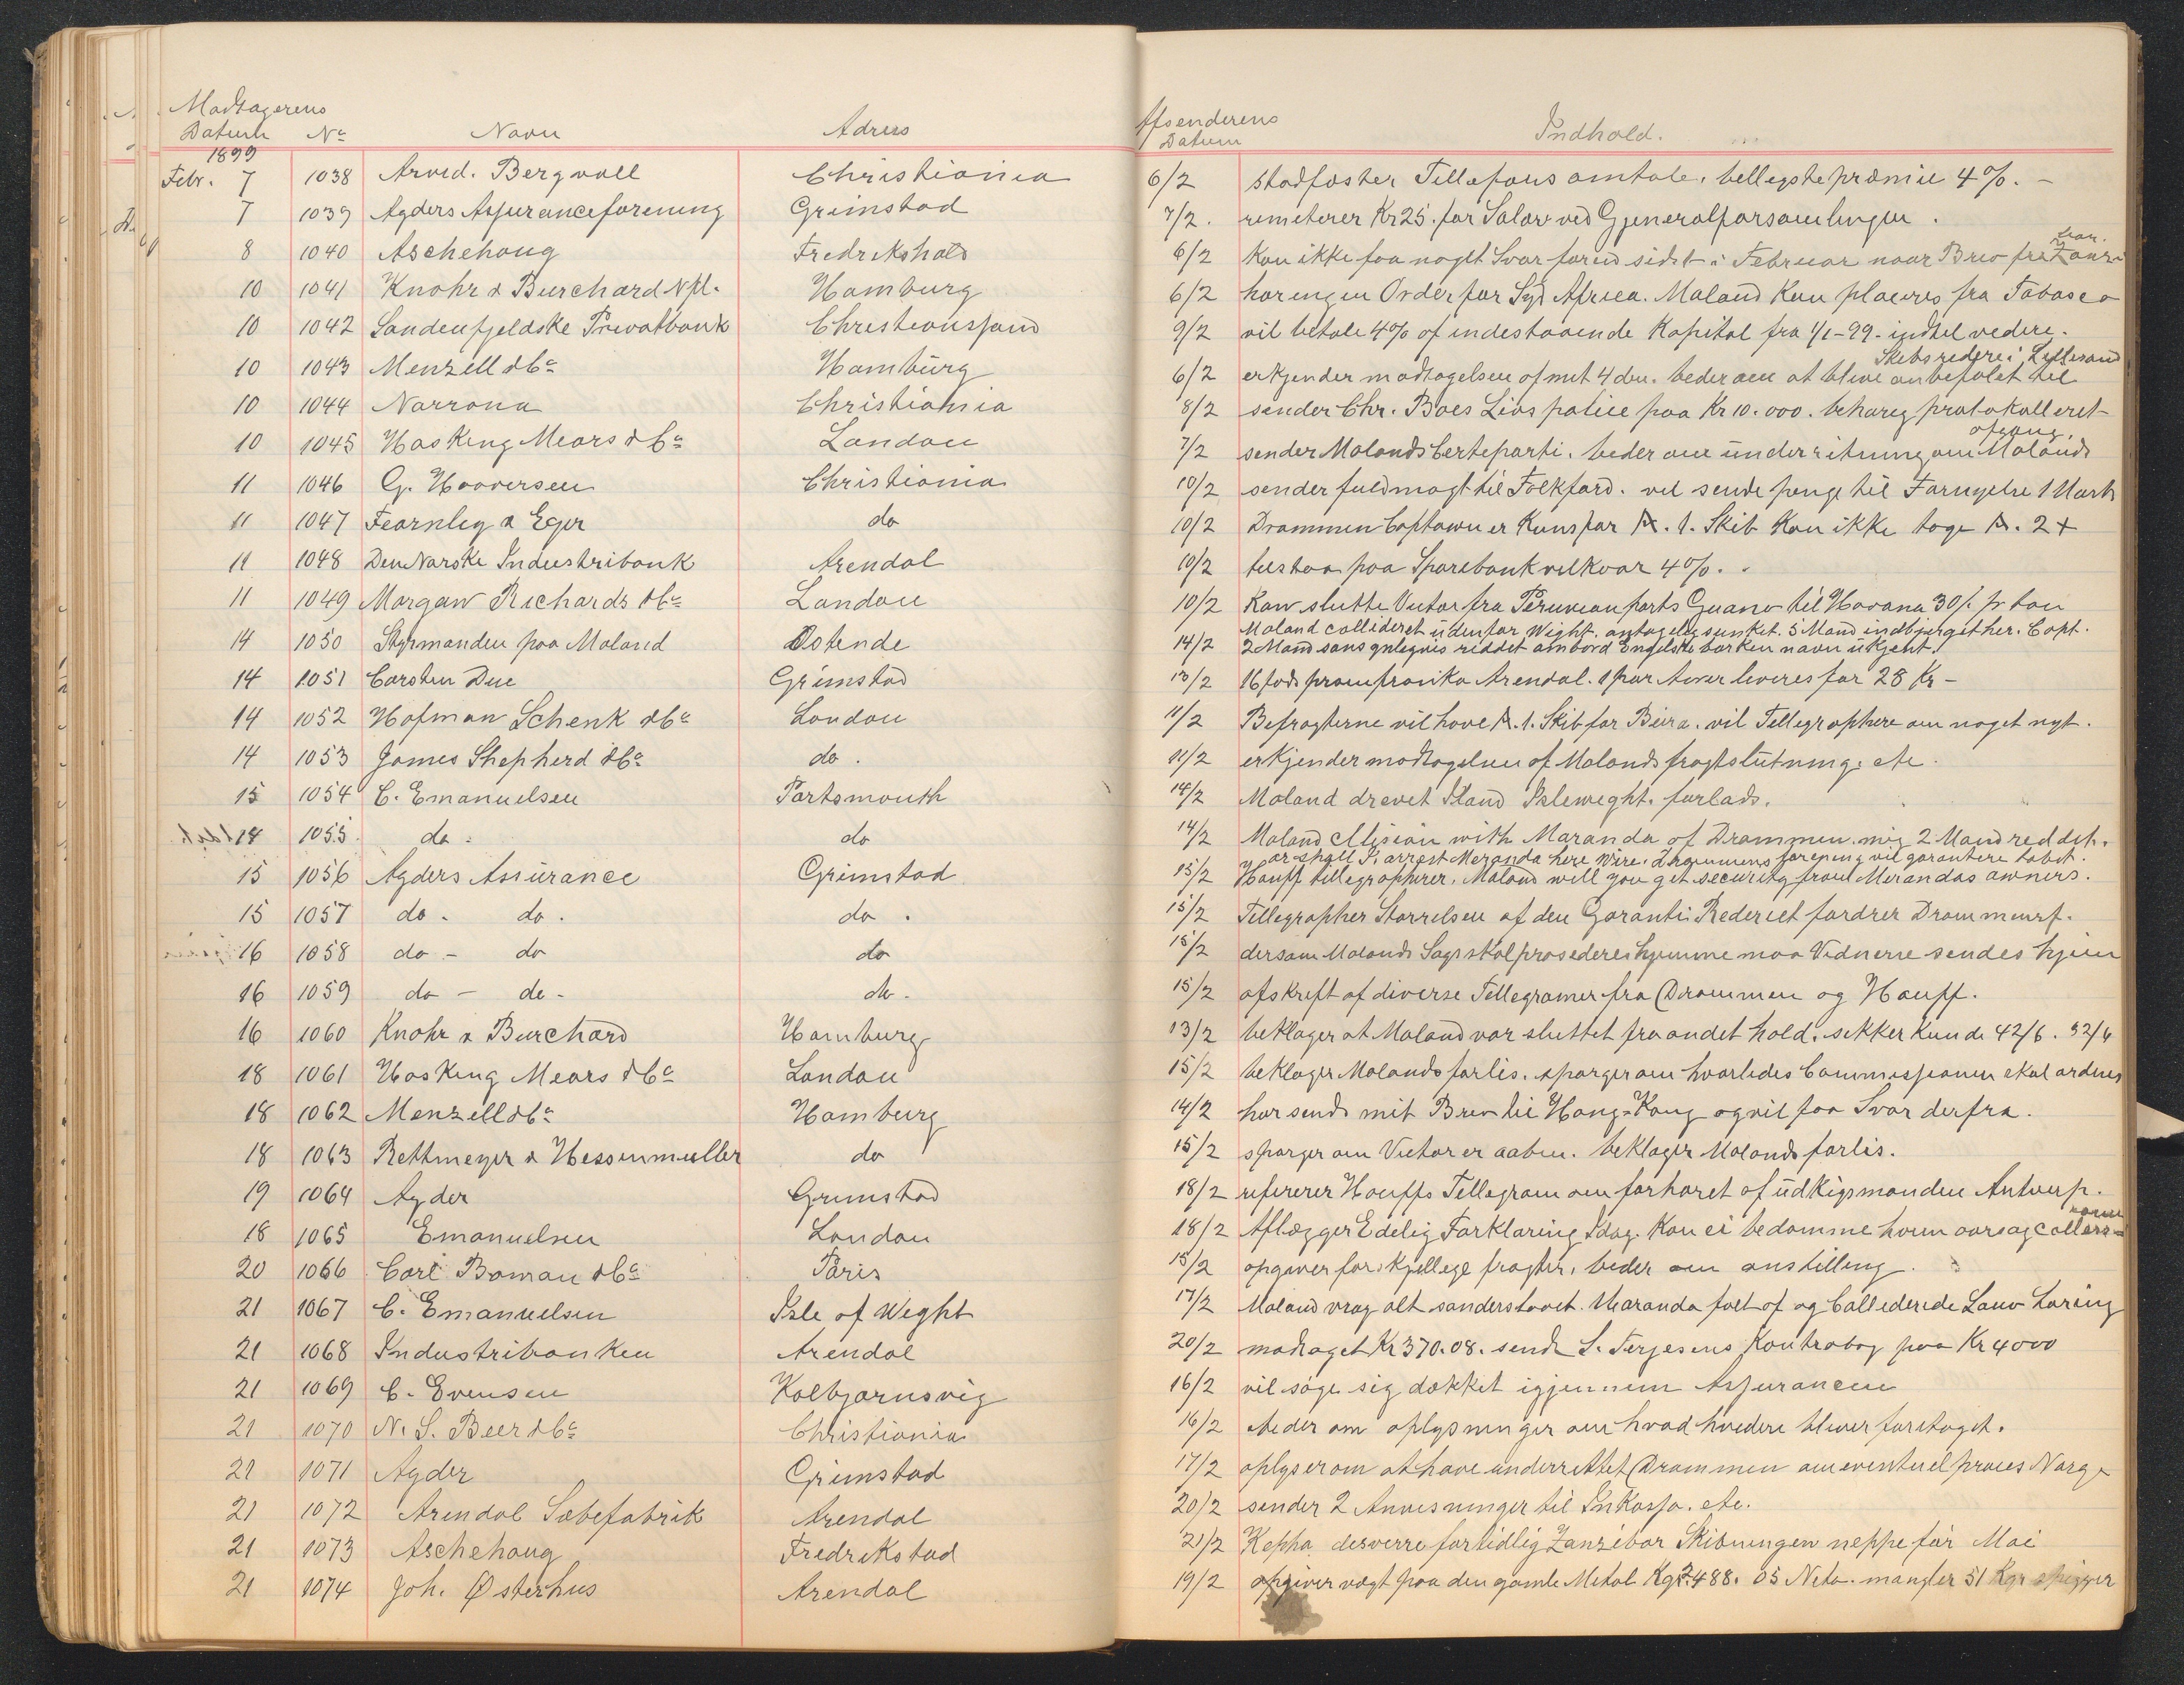 Modtagerens
Datum No Navn Adress
1899
Febr. 7 1038 Arvid. Bergvall Christiania
7 1039 Agders Assuranceforening Grimstad
8 1040 Aschehoug Fredrikshald
10 1041 Knohr & Burchard Nfl. Hamburg
10 1042 Søndenfjeldske Privatbank Christianssand
10 1043 Menzell & Co Hamburg
10 1044 Norrona Christiania
10 1045 Hasking Mears & Co London
11 1046 G. Haaversen Christiania
11 1047 Fearnley & Eger do
11 1048 Den Norske Industribank Arendal
11 1049 Morgan Richards & Co London
14 1050 Styrmanden paa Moland Ostende
14 1051 Carsten Due Grimstad
14 1052 Hofman Schenk & Co London
14 1053 James Shepherd & Co do.
15 1054 C. Emanuelsen Portsmouth
14 1055. do. do
15 1056 Agders Assurance Grimstad
15 1057 do. do. do.
16 1058 do - do do
16 1059 do - do - do.
16 1060 Knohr & Burchard Hamburg
18 1061 Hasking Mears & Co London
18 1062 Menzell & Co Hamburg
18 1063 Rettmeyer & Hessenmuller do
19 1064 Agder Grimstad
18 1065 Emanuelsen London
20 1066 Carl Boman & Co Paris
21 1067 C. Emanuelsen Isle of Weght
21 1068 Industribanken Arendal
21 1069 C. Evensen Kolbjørnsvig
21 1070 N. S. Beer & Co Christiania
21 1071 Agder Grimstad
21 1072 Arendal Sæbefabrik Arendal
21 1073 Aschehoug Fredrikstad
21 1074 Joh. Østerhus Arendal
Afsenderens
Datum Indhold.
6/2 stadfæster Tellefons omtale, billigste præmie 4%. -
7/2. remeterer Kr 25. for Salær ved Gjeneralforsamlingen.
6/2 Kan ikke faa noget Svar førend sidst i Februar naar Brev fra
6/2 har ingen Order for Syd Africa. Moland Kan placeres fra Tabasco
9/2 vil betale 4% af indestaaende Kapital fra 1/1-99. indtil vedere.
Skibsredere i Lillesand
6/2 erkjender modtagelsen af mit 4 du. beder om at blive anbefalet til
8/2 sender Chr. Boes Livspolice paa Kr 10.000. behørig protokolleret
afgang.
7/2 sender Molands Certeparti. beder om underretning om Molands
10/2 sender fuldmagt til Folkford. vil sende penge til Fornyelse 1 Marts
10/2 Drammen Captown er Kuns for A. 1. Skib Kan ikke tage A. 2 +
10/2 tilstaa paa Sparebankvilkaar 4%.
10/2 Kan slutte Victor fra Peruvian ports Guano til Havana 30/. pr ton
Moland collideret udenfor Wight, antagelig sunket. 5 Mand indbjerget her. Capt.
14/2 2 Mand sansynligvis riddet ombord Engelske barken navn ukjent.
13/2 16 fods pram franko Arendal. 1 par Aarer leveres for 28 Kr -
11/2 Befragterne vil have A. 1. Skib for Beira. vil Tellegraphere om noget nyt.
11/2 erkjender modtagelsen af Molands fragtslutning. etc.
14/2 Moland drevet Iland Isleweght. forlads.
14/2 Moland Collision with Maranda of Drammen. mig 2 Mand reddet.
or shall I. arrest Meranda here Wire. Drammens forening vil garantere tabet.
15/2 Hauff tellegrapherer, Moland will you get security from Merandas owners.
15/2 Tellegrapher Størrelsen af den Garanti Rederiet fordrer Drammensf.
15/2 dersom Molands Sags skal prosederes hjemme maa Vidnerne sendes hjem
15/2 afskrift af diverse Tellegramer fra Drammen og Hauff.
13/2 beklager at Moland var sluttet fra andet hold. sikker Kunde 42/6. 32/6
15/2 beklager Molands forlis. spørger om hvorledes Commissionen skal ordnes
14/2 har sendt mit Brev til Hong-Kong og vil faa Svar derfra.
15/2 spørger om Victor er aaben. beklager Molands forlis.
18/2 refererer Hauffs Tellegram om forhøret af udkigsmanden Antwerp.
18/2 Aflægger Edelig Forklaring Idag. Kan ei bedømme hvem aarsag
15/2 opgaver forskjellige fragter, beder om anstilling.
17/2 Moland vrag alt sønderslaaet. Maranda folt af og Callederede Lauv Loring
20/2 modtaget Kr 370.08. sendt S. Terjesens Kontrabog paa Kr 4000
16/2 vil søge sig dækket igjennem Assurancen
16/2 beder om oplysninger om hvad hvidere bliver foretaget.
17/2 oplyser om at have underrettet Drammen om eventuel proces Norge
20/2 sender 2 Anvisninger til Inkasso. etc.
21/2 Kepha desverre for tidlig Zanzibar Skibningen neppe før Mai
19/2 opgiver vægt paa den gamle Metal Kgr 2488. 05 Neto. mangler 51 Kgr